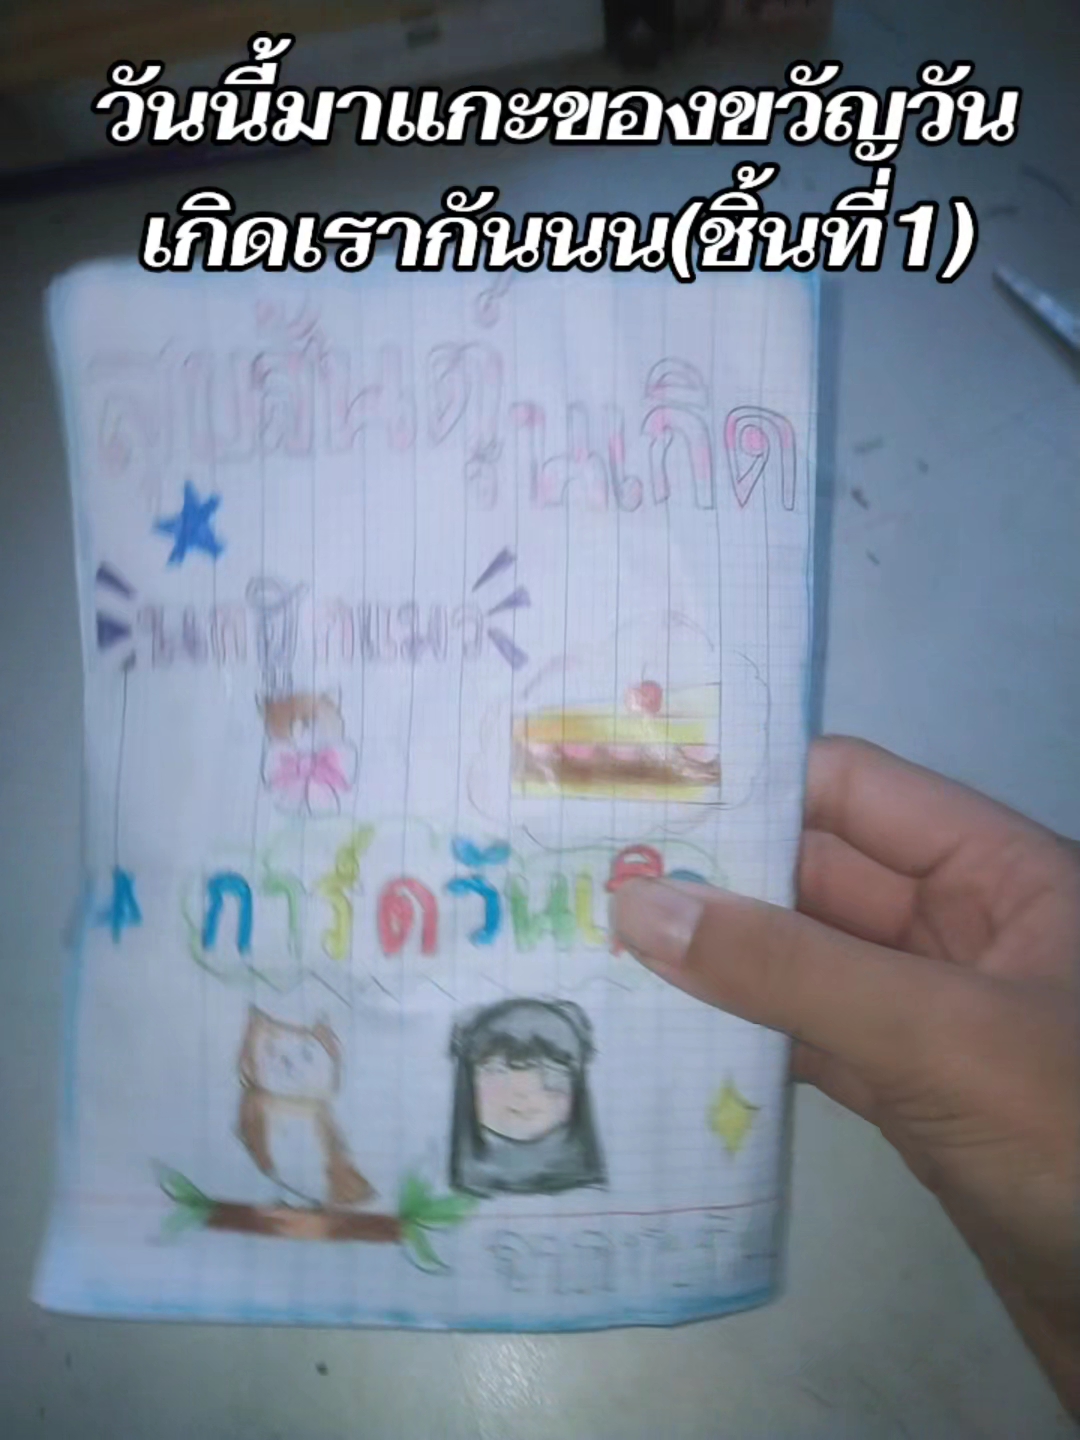 วันนี้มาแกะของขวัญวัน
เกิดเรากันนน(ชิ้นที่1)
สุขสันต์
วันเกิด
นกฮูกแมว
การ์ดวันเกิ